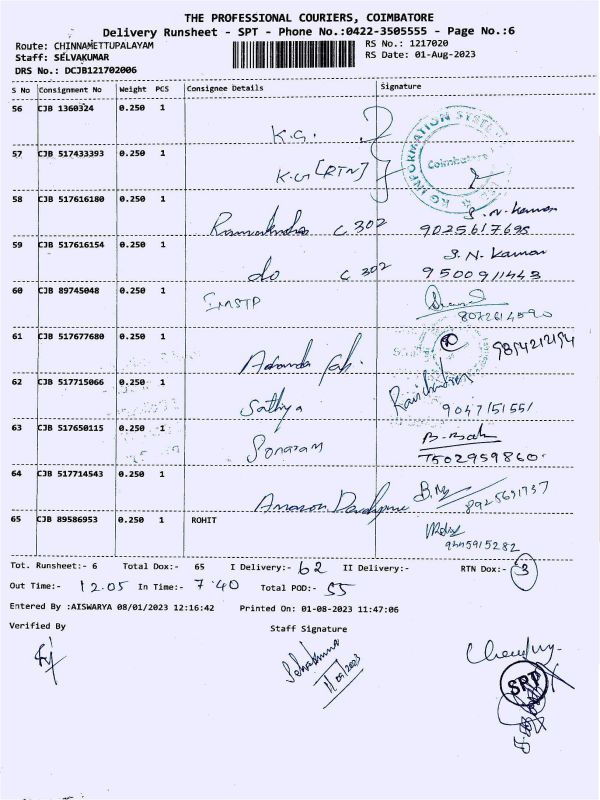 THE PROFESSIONAL COURIERS, COIMBATORE
Delivery Runsheet - SPT - Phone No.:0422-3505555 - Page No.:6
Route: CHINNAMETTUPALAYAM RS No.: 1217020
Staff: SELVAKUMAR RS Date: 01-Aug-2023
DRS No.: DCJB121702006
S No Consignment No Weight PCS Consignee Details Signature
56 CJB 1360324 0.250 1
K.G.
57 CJB 517433393 0.250 1
K.G [RTN]
Coimbatore
58 CJB 517616180 0.250 1
C 302 S.N. Kumar
9025617695
59 CJB 517616154 0.250 1
do C 302 S.N. Kumar
9500911443
60 CJB 89745048 0.250 1
61 CJB 517677680 0.250 1
62 CJB 517715066 0.250 1
Sathya
9047151551
63 CJB 517650115 0.250 1
7502959860
64 CJB 517714543 0.250 1
65 CJB 89586953 0.250 1 ROHIT
Tot. Runsheet:- 6 Total Dox:- 65 I Delivery:- 62 II Delivery:- RTN Dox:- 3
Out Time:- 12.05 In Time:- 7.40 Total POD:- 55
Entered By :AISWARYA 08/01/2023 12:16:42 Printed On: 01-08-2023 11:47:06
Verified By Staff Signature
SPT